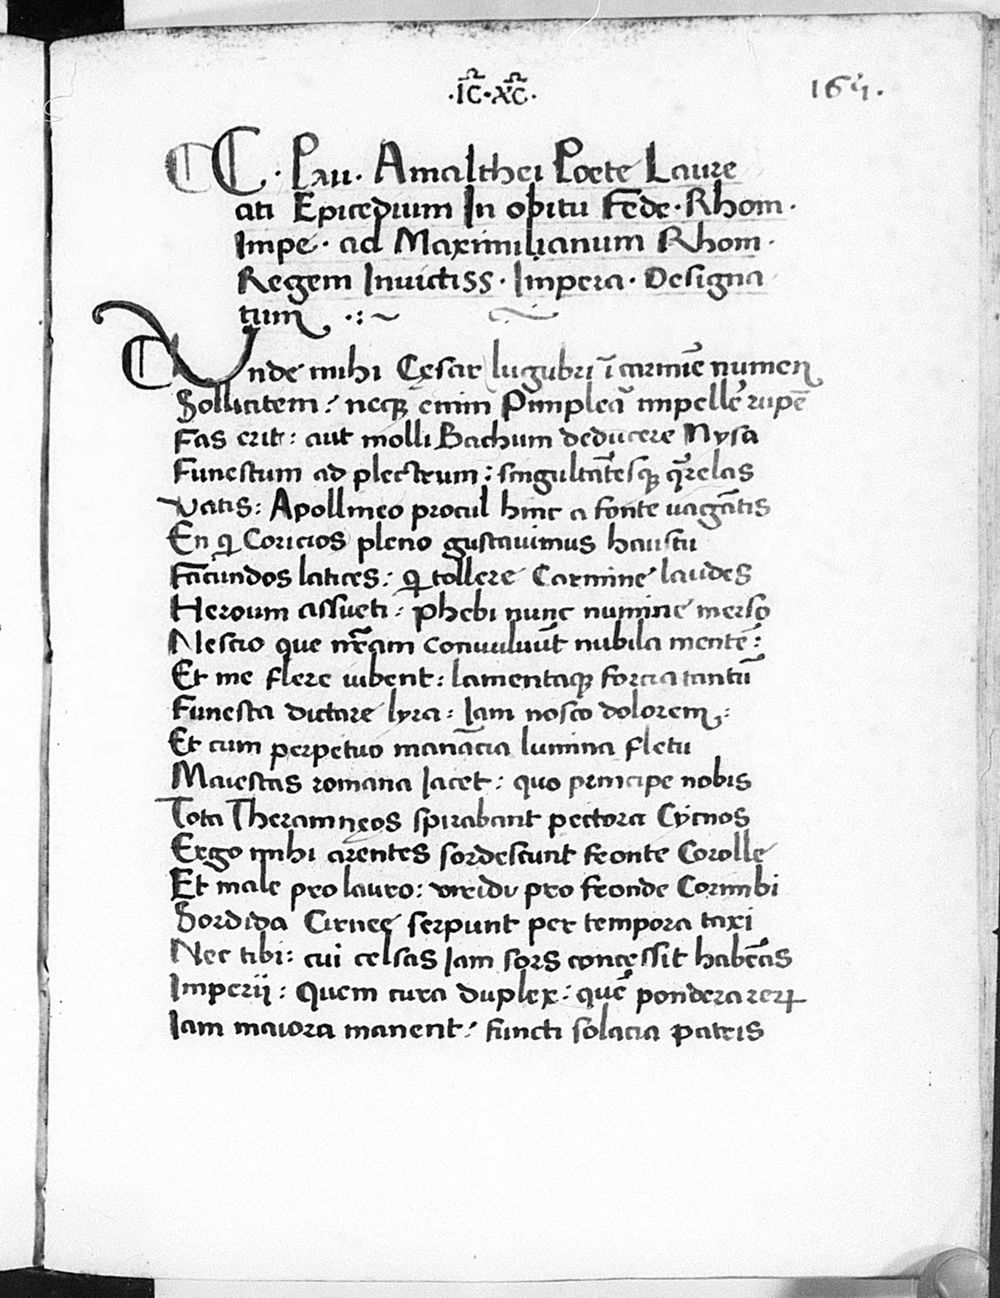 ·IC̅·XC̅·
164.
C. Pau. Amalthei Poete Laure
ati Epicedium In obitu Fede·Rhom·
Impe· ad Maximilianum Rhom·
Regem Inuictiss· Impera· Designa
tum ·:~
Vnde mihi Cęsar lugubri ī carmīe numen
Sollicitem: neqꝫ enim Pimpleā impellē rupē
Fas erit: aut molli Bachum deducere Nysa
Funestum ad plectrum: singultātesqꝫ q̄relas
Vatis: Apollineo procul hinc a fonte uagātis
En qͥ Coricios pleno gustauimus haustu
Facundos latices: qͥ tollere Carmine laudes
Heroum assueti: phębi nunc numine merso
Nescio que nr̄am conuuluūt nubila mentē:
Et me flere iubent: lamentaqꝫ forcia tantū
Funesta dictare lyra: Iam nosco dolorem:
Et cum perpetuo manācia lumina fletu
Maiestas romana Iacet: quo principe nobis
Tota Theramnęos spirabant pectora Cycnos
Ergo mihi arentes sordescunt fronte Corolle
Et male pro lauro: viridi pro fronde Corimbi
Sordida Cirneę serpunt per tempora taxi
Nec tibi: cui celsas Iam sors concęssit habēas
Imperij: Quem cura duplex: quē pondera reꝝ
Iam maiora manent: functi solacia patris